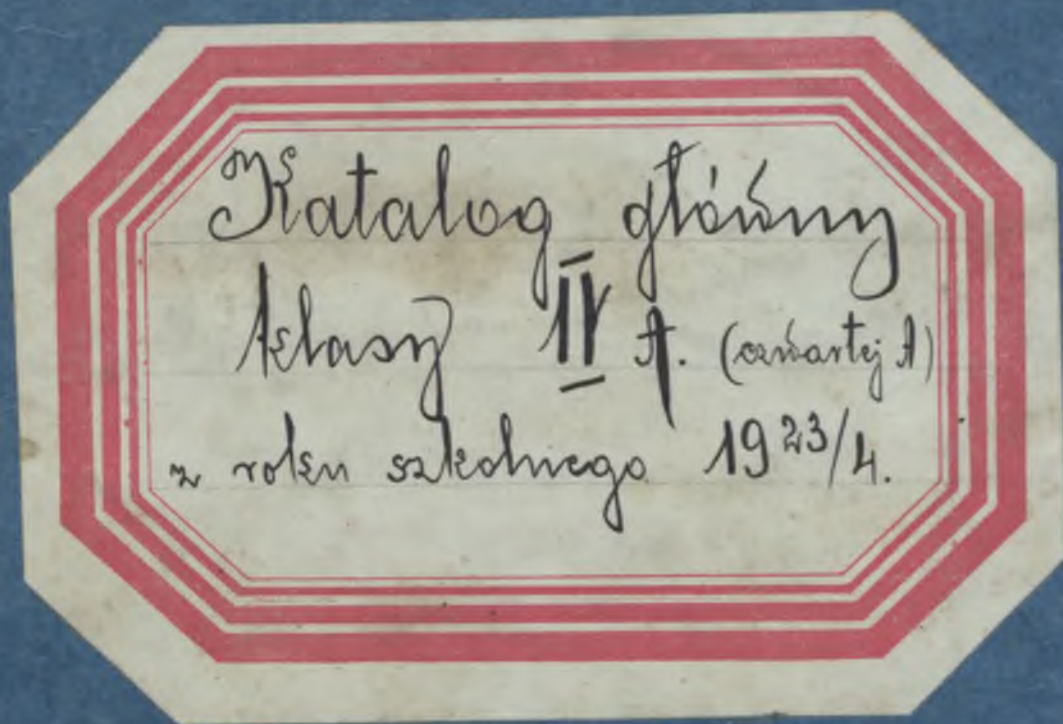 Katalog główny
klasy IV A. (czwartej A)
z roku szkolnego 1923/4.